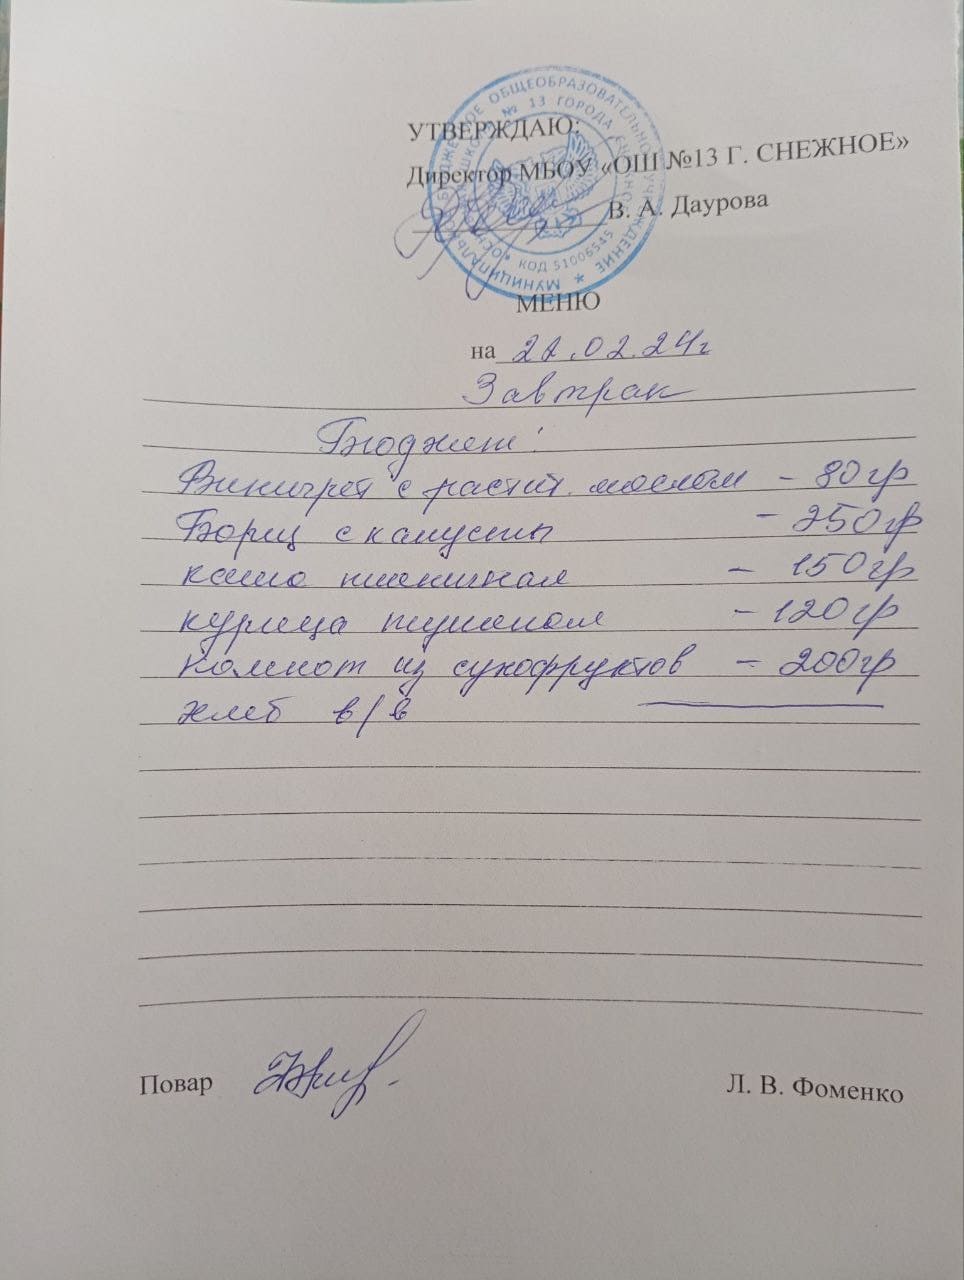 УТВЕРЖДАЮ:
Директор МБОУ «ОШ №13 Г. СНЕЖНОЕ»
В. А. Даурова
МУНИЦИПАЛЬНОЕ БЮДЖЕТНОЕ ОБЩЕОБРАЗОВАТЕЛЬНОЕ УЧРЕЖДЕНИЕ
№ 13 ГОРОДА
КОД 51006545
МЕНЮ
на 22.02.24г
Завтрак
Бюджет:
Винигрет с растит. маслом - 80гр
Борщ с капусты - 250гр
каша пшеничная - 150гр
курица тушеная - 120гр
Компот из сухофруктов - 200гр
хлеб в/в
Повар
Л. В. Фоменко